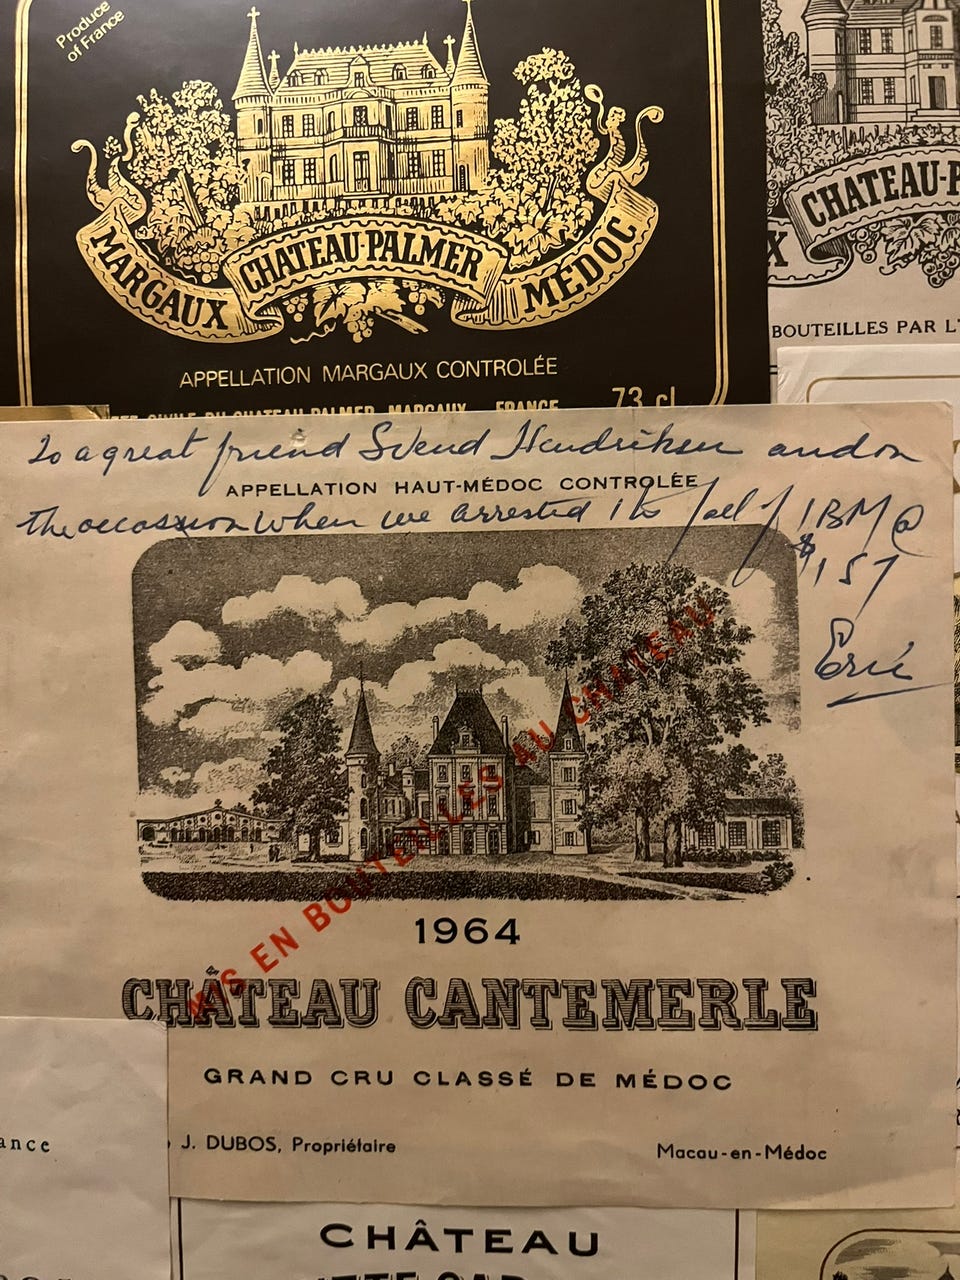 Produce
of France
MARGAUX CHATEAU·PALMER MÉDOC
APPELLATION MARGAUX CONTROLÉE
CIVILE DU CHATEAU PALMER MARGAUX FRANCE
73 cl
CHATEAU-P
X
BOUTEILLES PAR L'
To a great friend Svend Hendriksen and on
APPELLATION HAUT-MÉDOC CONTROLÉE
the occassion when we arrested the fall of IBM @
$157
Eric
MIS EN BOUTEILLES AU CHATEAU
1964
CHÂTEAU CANTEMERLE
GRAND CRU CLASSÉ DE MÉDOC
ance
J. DUBOS, Propriétaire
Macau-en-Médoc
CHÂTEAU